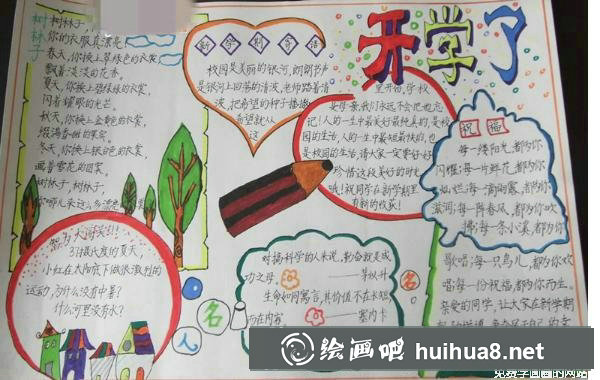 开学了
树林子
树林子,
你的衣服真漂亮
春天,你换上翠绿色的衣裳,
飘着淡淡的花香。
夏天,你换上碧绿色的衣裳,
闪着耀眼的光芒。
秋天,你换上金黄色的衣裳,
冬天,你换上银白色的衣裳,
画着雪花的图案。
树林子,树林子,
新学期寄语
校园是美丽的银河,朗朗书声
是银河上回荡的清波,老师踏着清
波,把希望的种子播撒,
希望就从
这
里开始,学校
父母、亲朋们永远不会把你忘
记!人的一生中最美好最纯真的,是校
园的生活,人的一生中最短最快的,也
是校园的生活,请大家一定要好好
珍惜这段美好的时光
哦!祝同学在新学期里
有新的收获!
祝福
每一缕阳光,都为你
闪耀;每一片鲜花,都为你
灿烂;每一滴雨露,都为你
滋润;每一阵春风,都为你吹
拂;每一条小溪,都为你
歌唱;每一只鸟儿,都为你欢
唱;每一份祝福,都为你而生。
亲爱的同学,让大家在新学期
智力大闯关!!!
37摄氏度的夏天,
小红在太阳底下做很激烈的
运动,为什么没有中暑?
什么河里没有水?
名人名
对搞科学的人来说,勤奋就是成
功之母。
茅以升
生命如同寓言,其价值不在长短,
而在内容。
塞内卡
绘画吧 huihua8.net
免费学画画的网站